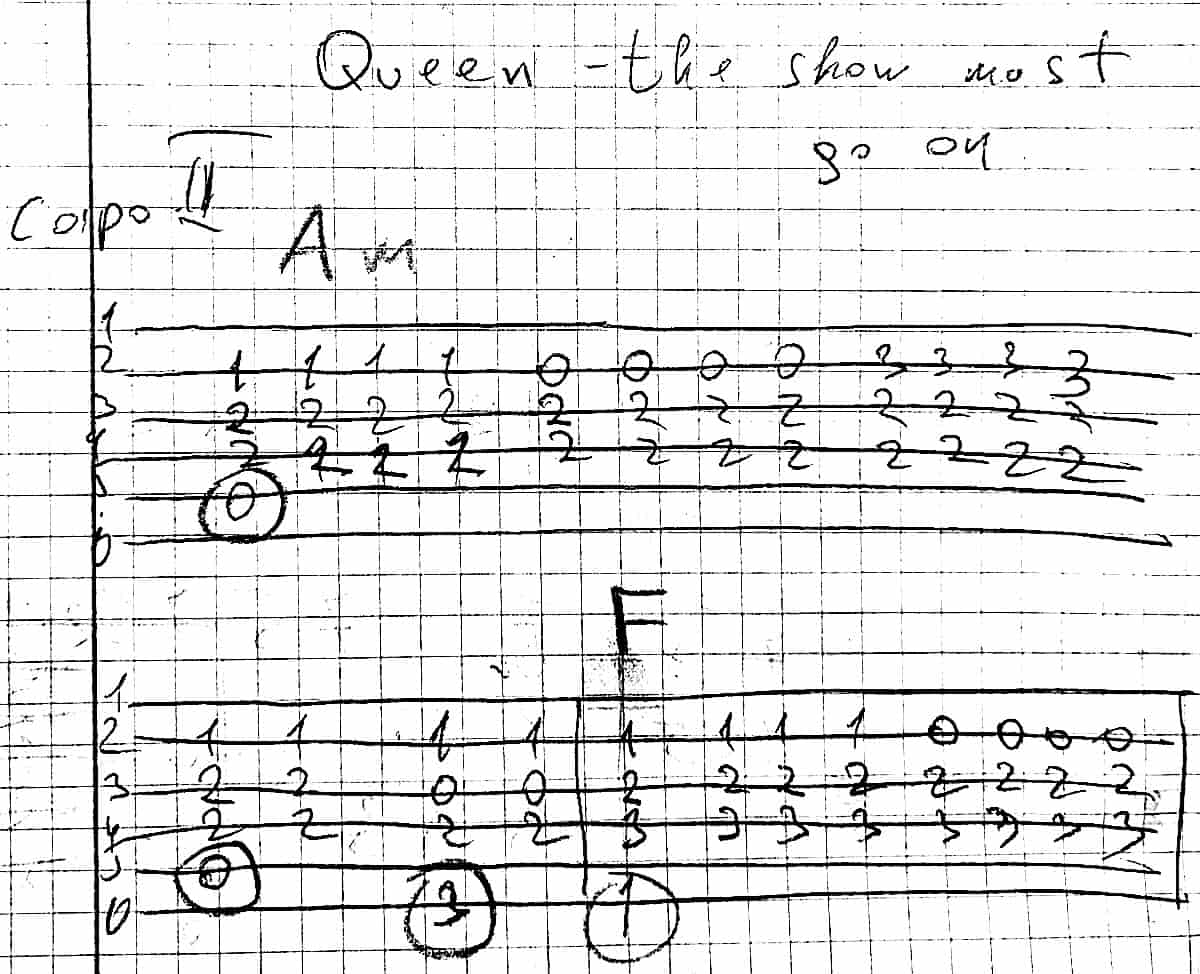 Queen - the show most
go on
Capo II
Am
1
2 1 1 1 1 0 0 0 0 3 3 3 3
3 2 2 2 2 2 2 2 2 2 2 2 2
4 2 2 2 2 2 2 2 2 2 2 2 2
5 0
6
F
1
2 1 1 1 1 1 1 1 1 0 0 0 0
3 2 2 0 0 2 2 2 2 2 2 2 2
4 2 2 2 2 3 3 3 3 3 3 3 3
5 0
6 3 1